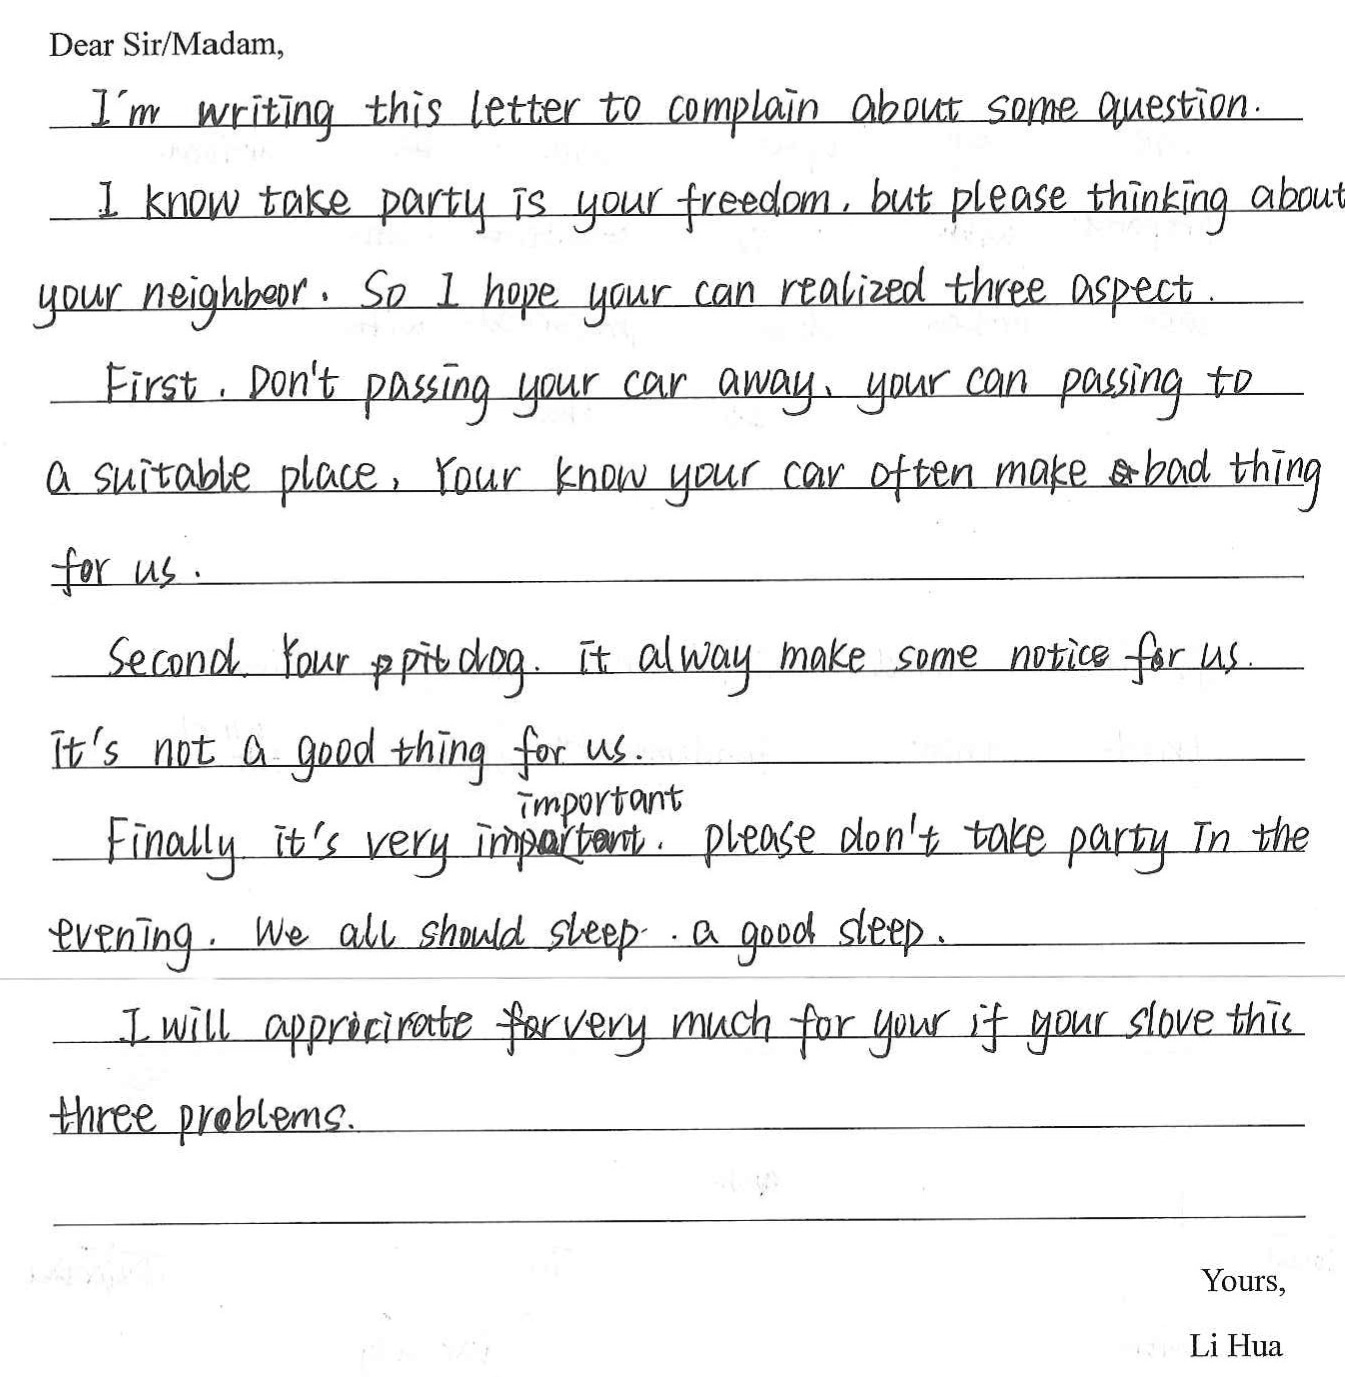 Dear Sir/Madam,
I'm writing this letter to complain about some question.
I know take party is your freedom, but please thinking about
your neighbeor. So I hope your can realized three aspect.
First. Don't passing your car away, your can passing to
a suitable place, Your know your car often make bad thing
for us.
Second. Your pit dog. it alway make some notice for us.
it's not a good thing for us.
important
Finally it's very . please don't take party In the
evening. We all should sleep. a good sleep.
I will apprecirate very much for your if your slove this
three problems.
Yours,
Li Hua